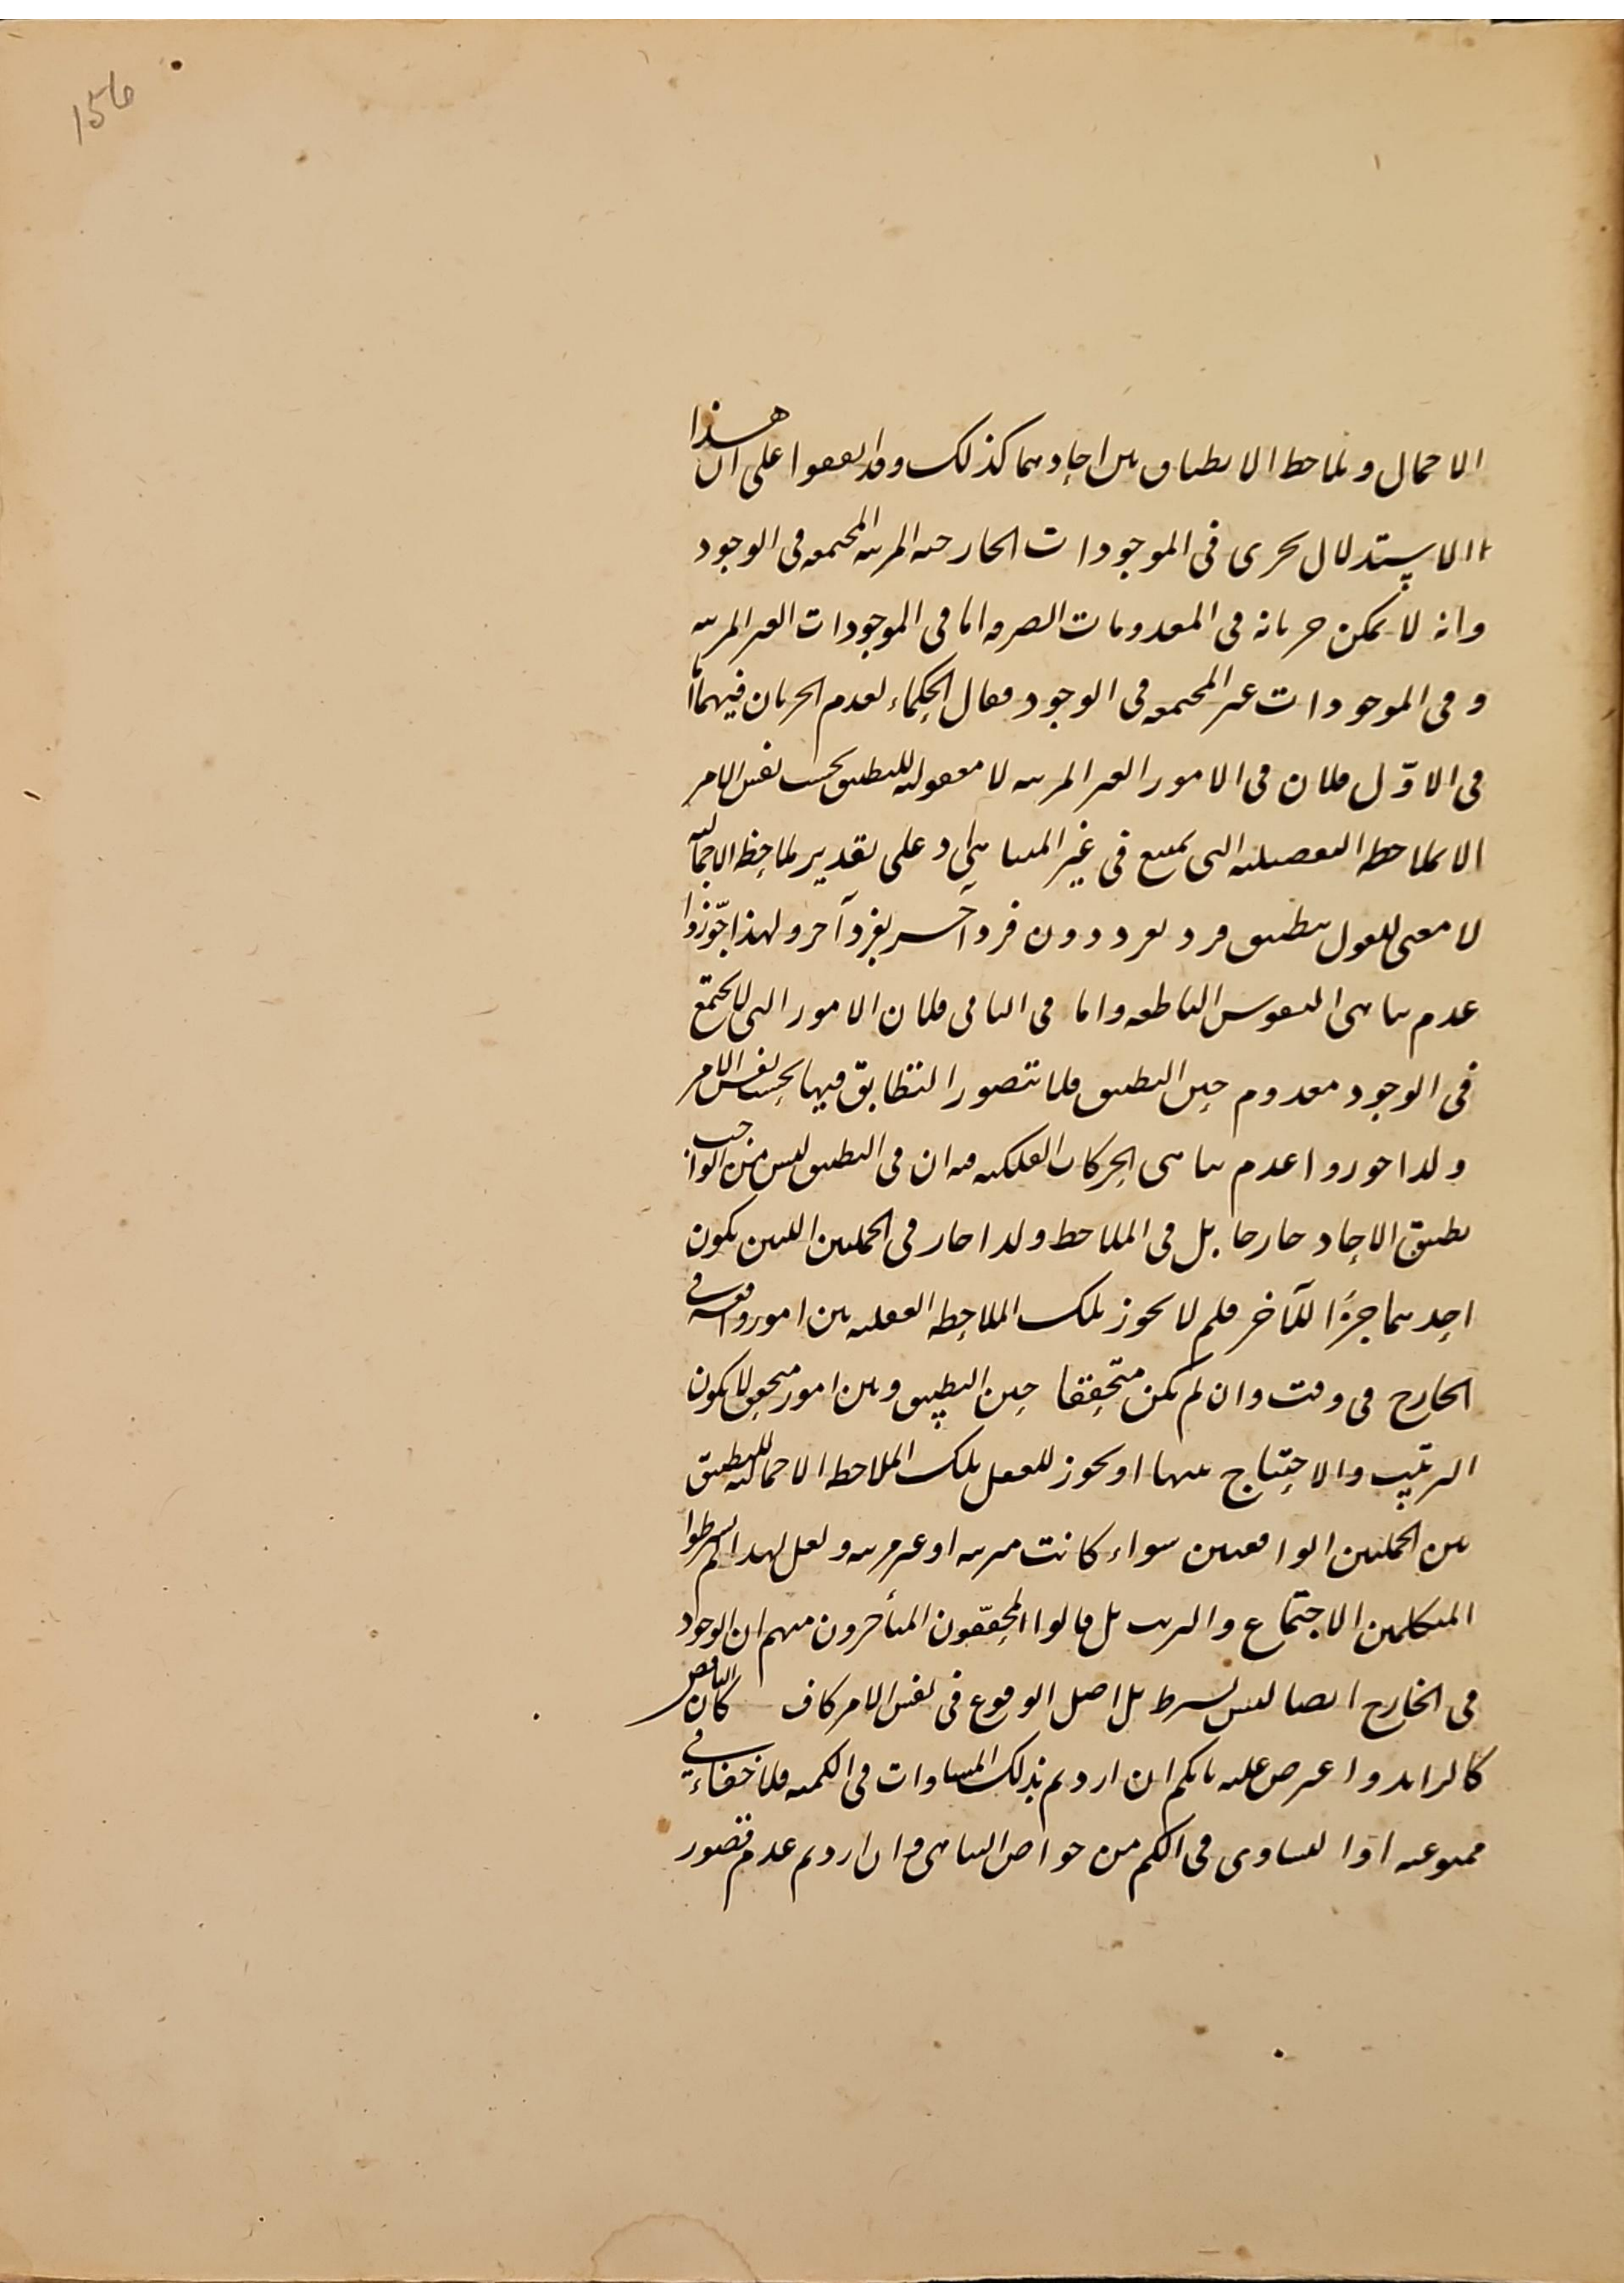 156
الاجمال وبملاحظ الانطباق بين احادهما كذلك وقد اتفقوا على ان هذا
الاستدلال يجرى فى الموجودات الخارجيه المرتبه المجتمعه فى الوجود
وانه لا يمكن جريانه فى المعدومات الصرفه اما فى الموجودات الغير المرتبه
وفى الموجودات غير المجتمعه فى الوجود فقال الحكماء بعدم الجريان فيهما اما
فى الاوّل فلان فى الامور الغير المرتبه لا معقوليه للتطبيق بحسب نفس الامر
الا بملاحظه التفصيليه التى يمتنع فى غير المتناهى اذ على تقدير ملاحظه الاجماليه
لا معنى للقول بتطبيق فرد بفرد دون فرد آخر بفرد آخر ولهذا جوّزوا
عدم تناهى النفوس الناطقه واما فى الثانى فلان الامور التى لا يجتمع
فى الوجود معدوم حين التطبيق فلا تتصور التطابق فيها بحسب نفس الامر
ولذا جوزوا عدم تناهى الحركات الفلكيه فيه ان فى التطبيق ليس من الواجب
تطبيق الاحاد خارجا بل فى الملاحظ ولذا جاز فى الجملتين اللتين يكون
احدهما جزءًا للآخر فلم لا يجوز بتلك الملاحظه العقليه بين امور واقعه فى
الخارج فى وقت وان لم يكن متحققا حين التطبيق وبين امور متحقق لا يكون
الترتيب والاحتياج بينها او يجوز للعقل بتلك الملاحظه الاجماليه التطبيق
بين الجملتين الواقعتين سواء كانت مرتبه او غير مرتبه ولعل لهذا لم يشرطوا
المتكلمين الاجتماع والترتب بل قالوا المحققّون المتأخرون منهم ان الوجود
فى الخارج ايضا ليس بشرط بل اصل الوقوع فى نفس الامر كاف كان الناقص
كالزايد واعترض عليه بانكم ان اردتم بذلك المساوات فى الكميه فلا خفاء فى
ممنوعيته اذا التساوى فى الكم من خواص التناهى وان اردتم عدم تصور